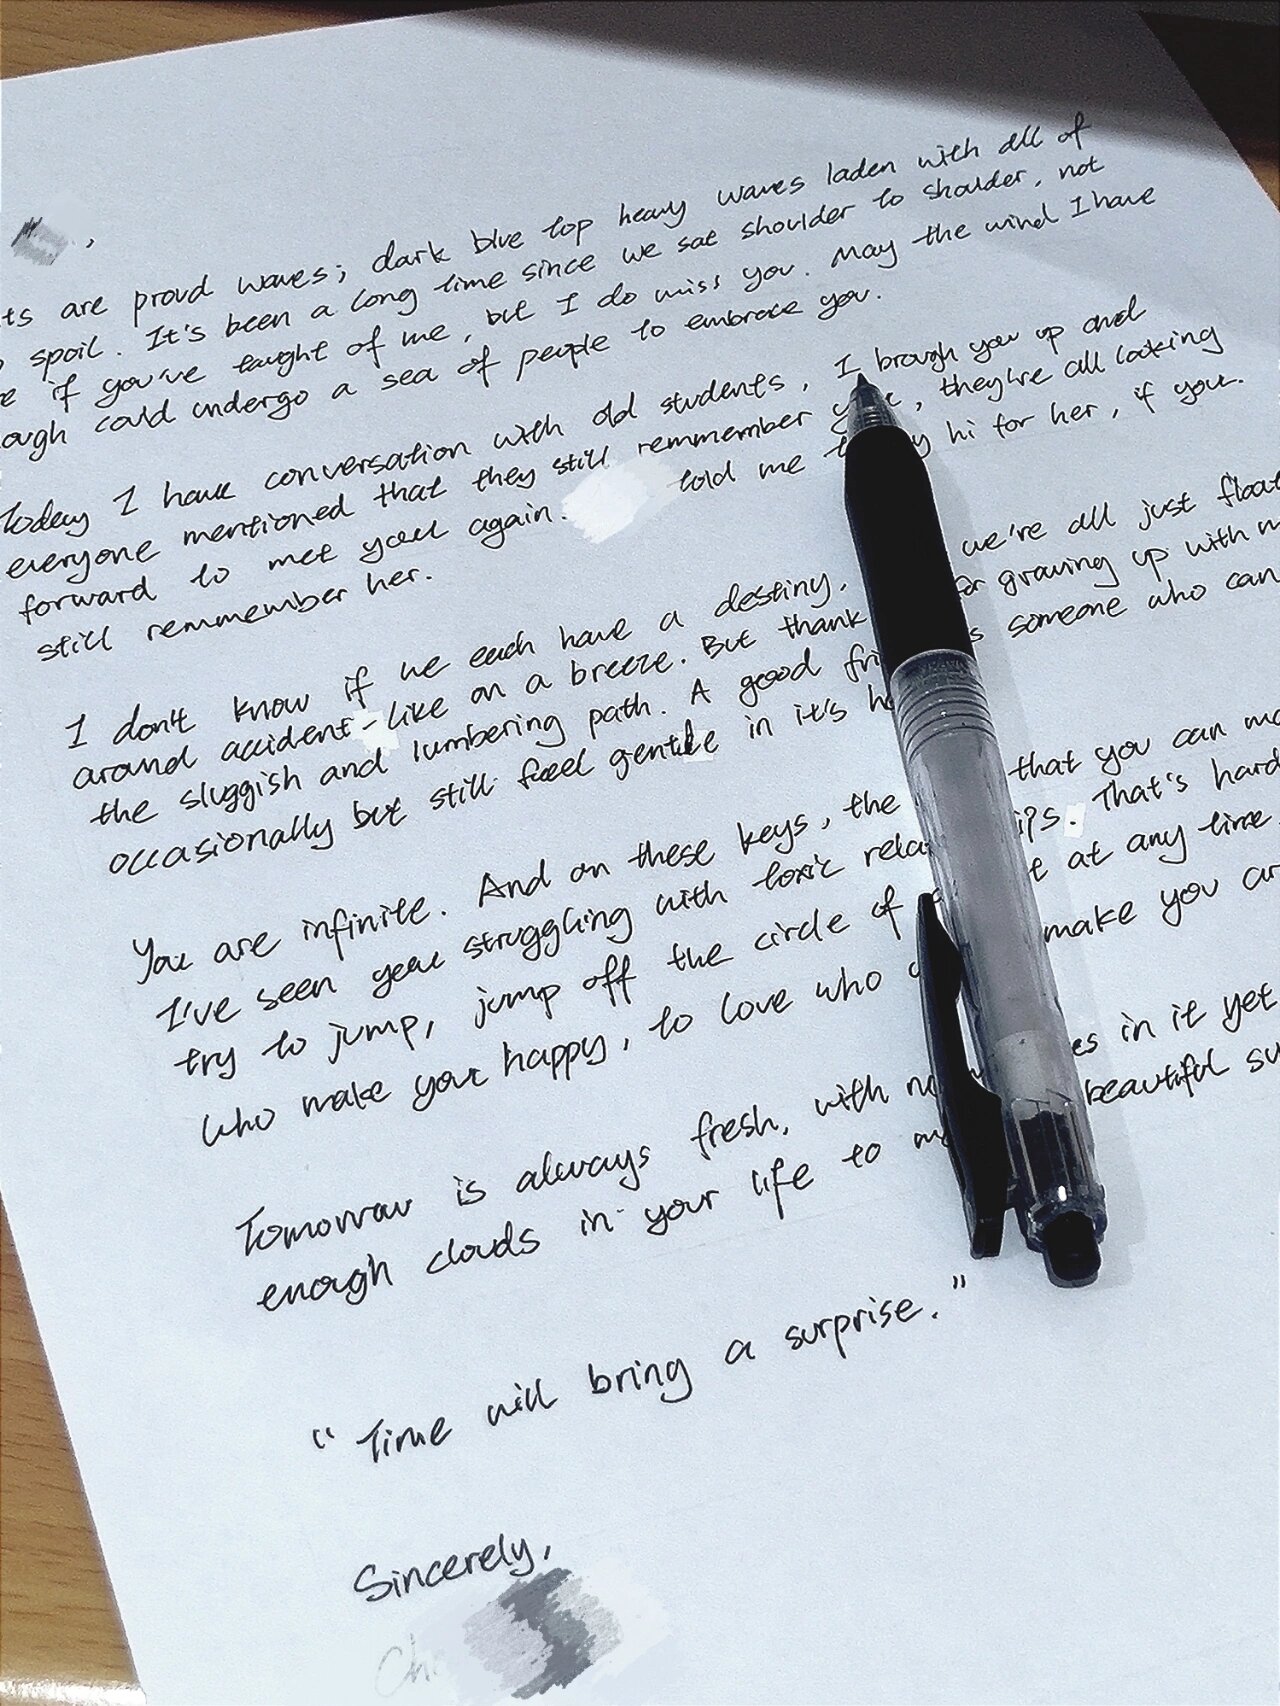 ts are proud waves; dark blue top heavy waves laden with all of
spoil. It's been a long time since we sat shoulder to shoulder, not
e if you've taught of me, but I do miss you. May the wind I have
ough could undergo a sea of people to embrace you.
Today I have conversation with old students, I brough you up and
everyone mentioned that they still remmember you, they're all looking
forward to met you again. told me to say hi for her, if you
still remmember her.
I don't know if we each have a destiny, we're all just float
around accident-like on a breeze. But thank for growing up with m
the sluggish and lumbering path. A good fri s someone who can
occasionally but still feel gentle in it's h
You are infinite. And on these keys, the that you can m
I've seen you struggling with toxic rela ips. That's hard
try to jump, jump off the circle of t at any time
who make your happy, to love who make you ar
Tomorrow is always fresh, with no es in it yet
enough clouds in your life to m beautiful su
"Time will bring a surprise."
Sincerely,
Ch